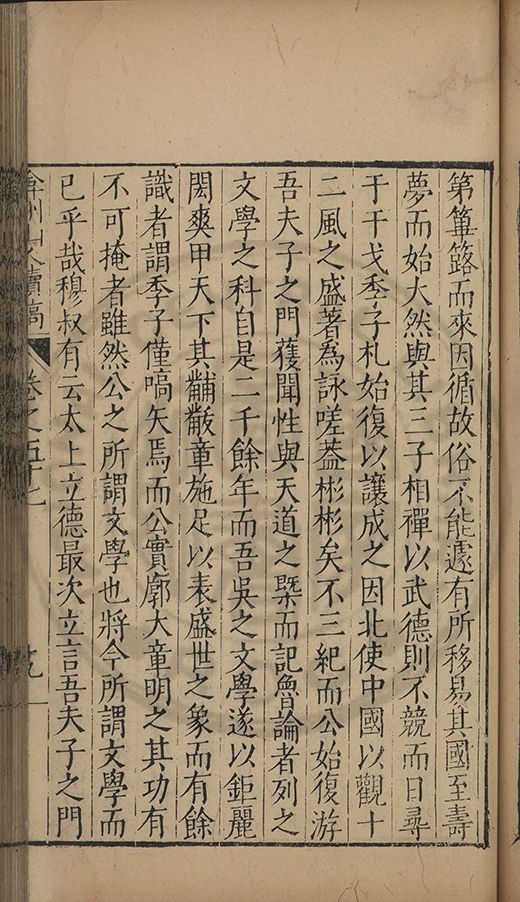 第篳簬而來因循故俗不能遽有所移易其國至壽
夢而始大然與其三子相禪以武德則不競而日尋
于干戈季子札始復以讓成之因北使中國以觀十
二風之盛著為詠嗟葢彬彬矣不三紀而公始復游
吾夫子之門獲聞性與天道之槩而記魯論者列之
文學之科自是二千餘年而吾吳之文學遂以鉅麗
閎爽甲天下其黼黻章施足以表盛世之象而有餘
識者謂季子僅嚆矢焉而公實廓大章明之其功有
不可掩者雖然公之所謂文學也將今所謂文學而
已乎哉穆叔有云太上立德最次立言吾夫子之門
弇州山人續稿 卷之五十七 十九